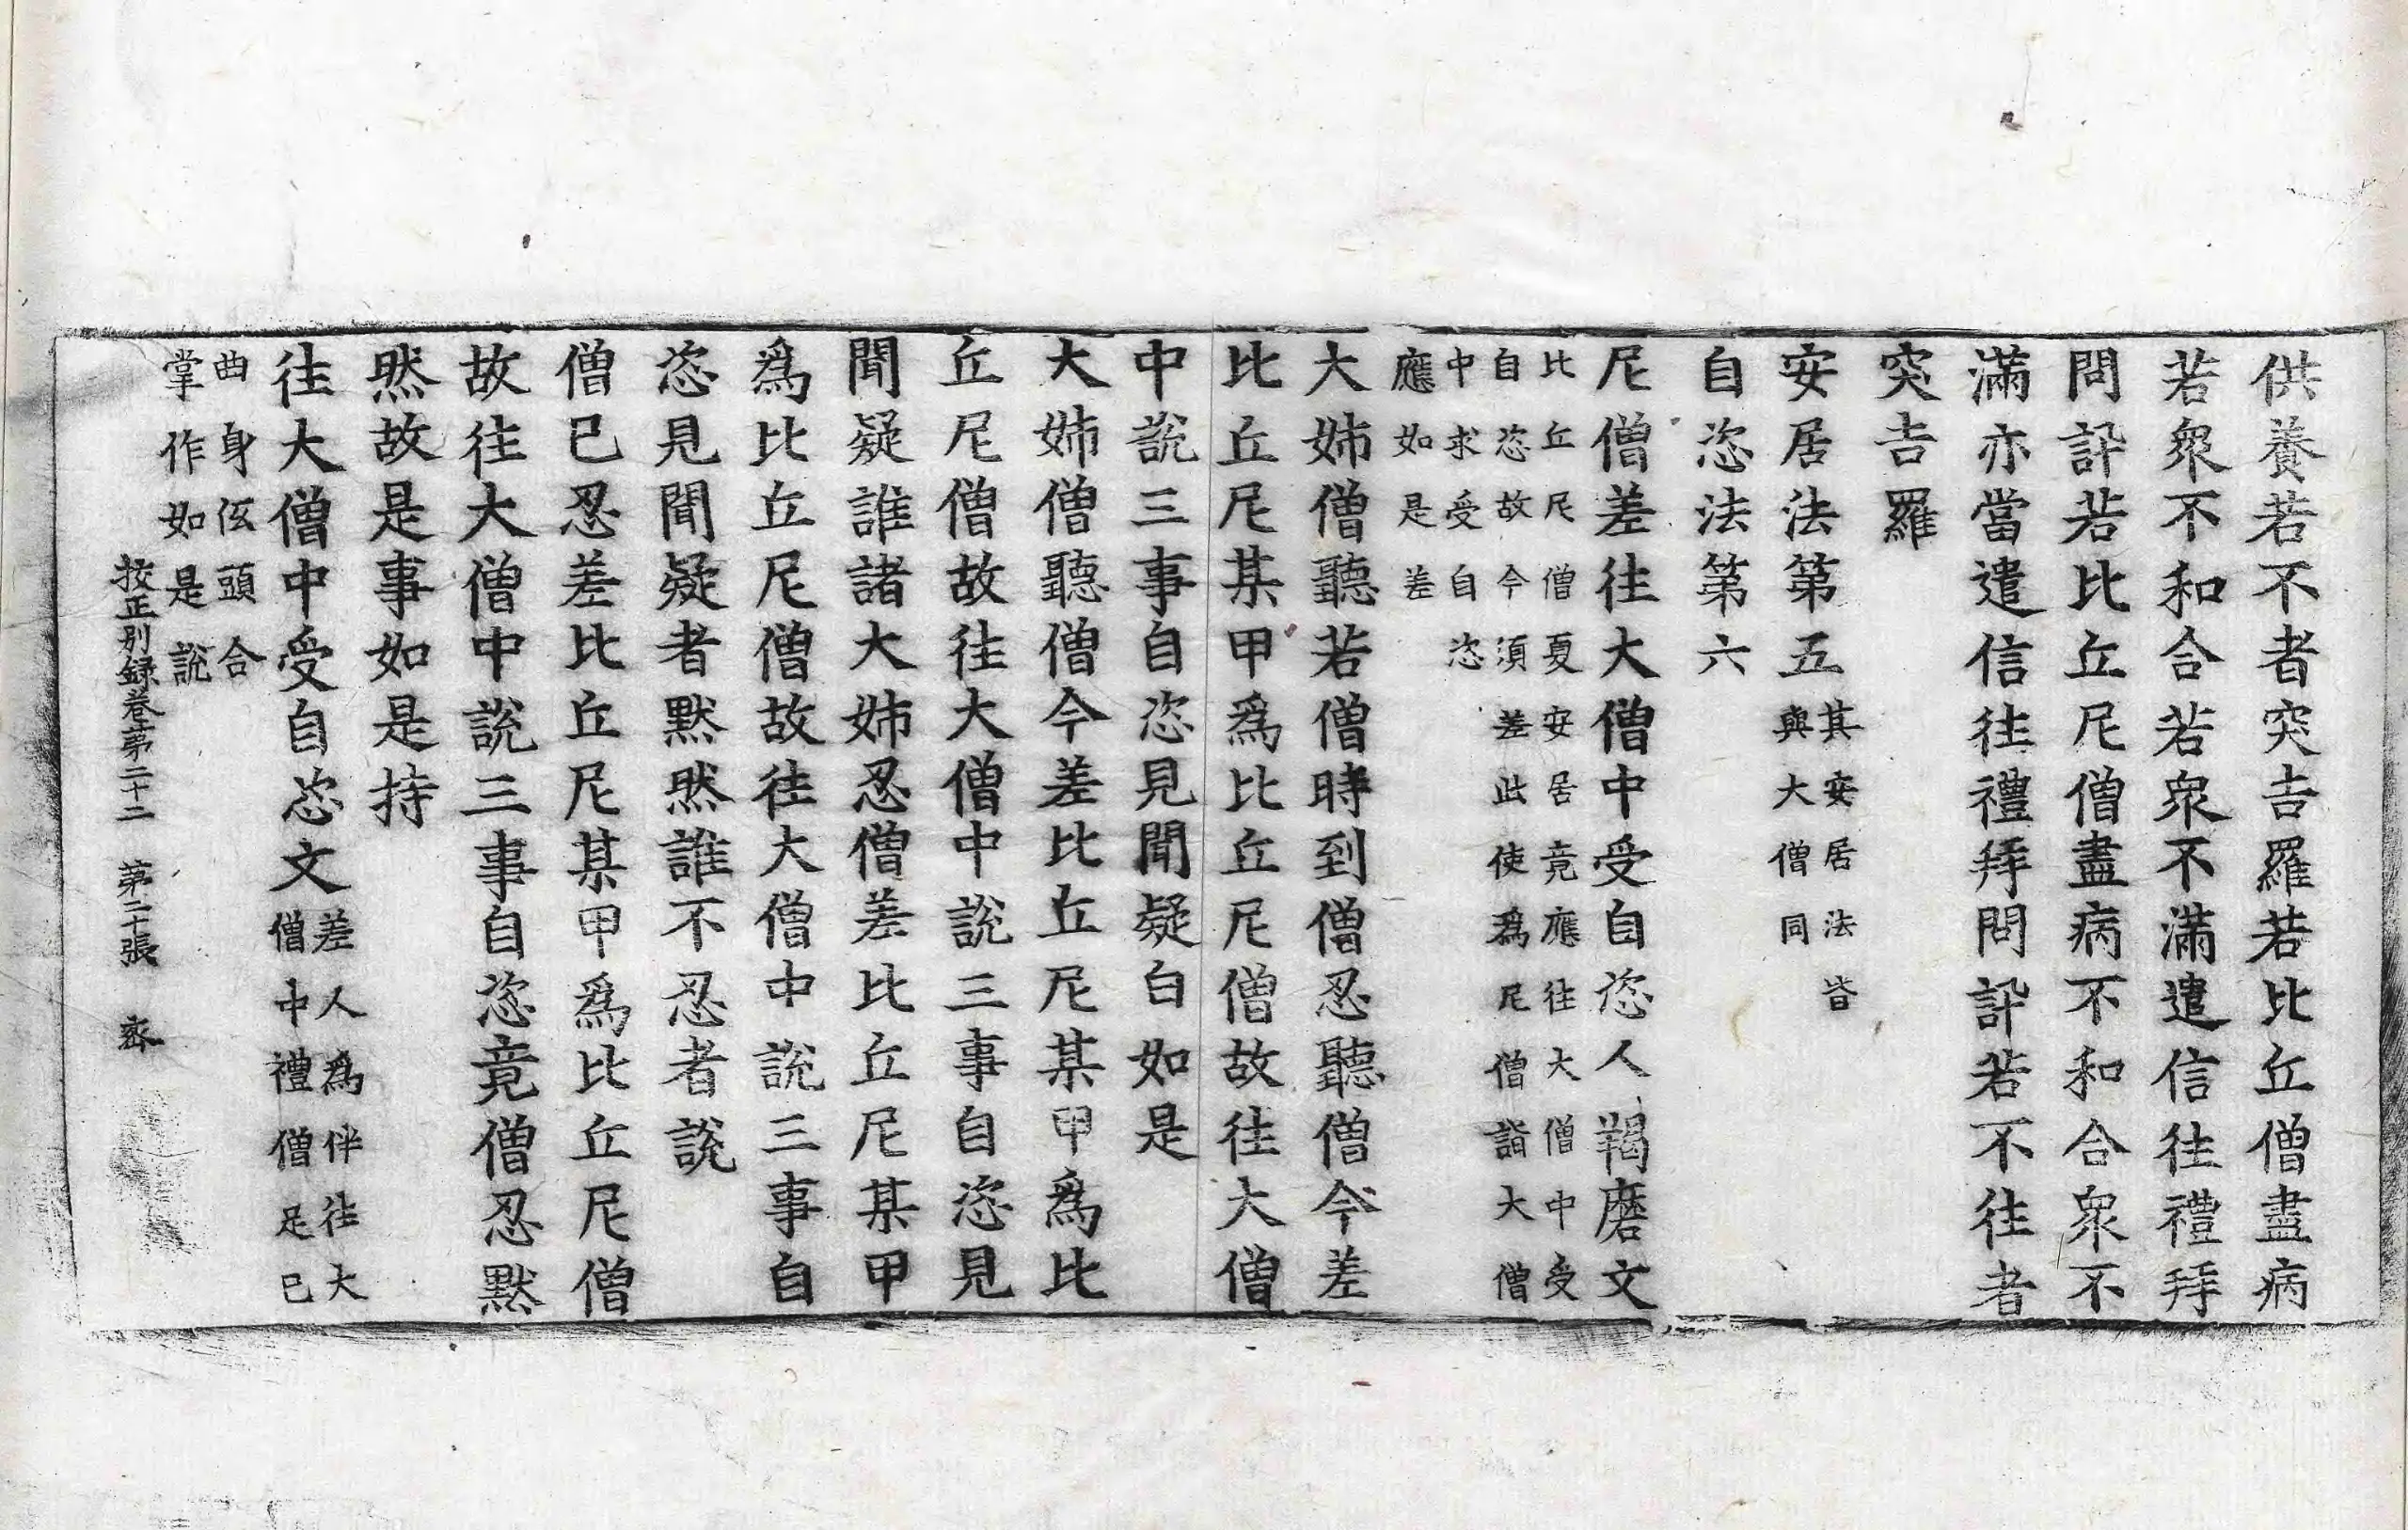 供養若不者突吉羅若比丘僧盡病
若衆不和合若衆不滿遣信往禮拜
問訊若比丘尼僧盡病不和合衆不
滿亦當遣信往禮拜問訊若不往者
突吉羅
安居法第五其安居法皆
與大僧同
自恣法第六
尼僧差往大僧中受自恣人羯磨文
比丘尼僧夏安居竟應往大僧中受
自恣故今須差此使爲尼僧詣大僧
中求受自恣
應如是差
大姊僧聽若僧時到僧忍聽僧今差
比丘尼某甲爲比丘尼僧故往大僧
中說三事自恣見聞疑白如是
大姊僧聽僧今差比丘尼某甲爲比
丘尼僧故往大僧中說三事自恣見
聞疑誰諸大姊忍僧差比丘尼某甲
爲比丘尼僧故往大僧中說三事自
恣見聞疑者默然誰不忍者說
僧已忍差比丘尼某甲爲比丘尼僧
故往大僧中說三事自恣竟僧忍默
然故是事如是持
往大僧中受自恣文差人爲伴往大
僧中禮僧足已
曲身伭頭合
掌作如是說
挍正別録卷第二十二 第二十張 𠫵